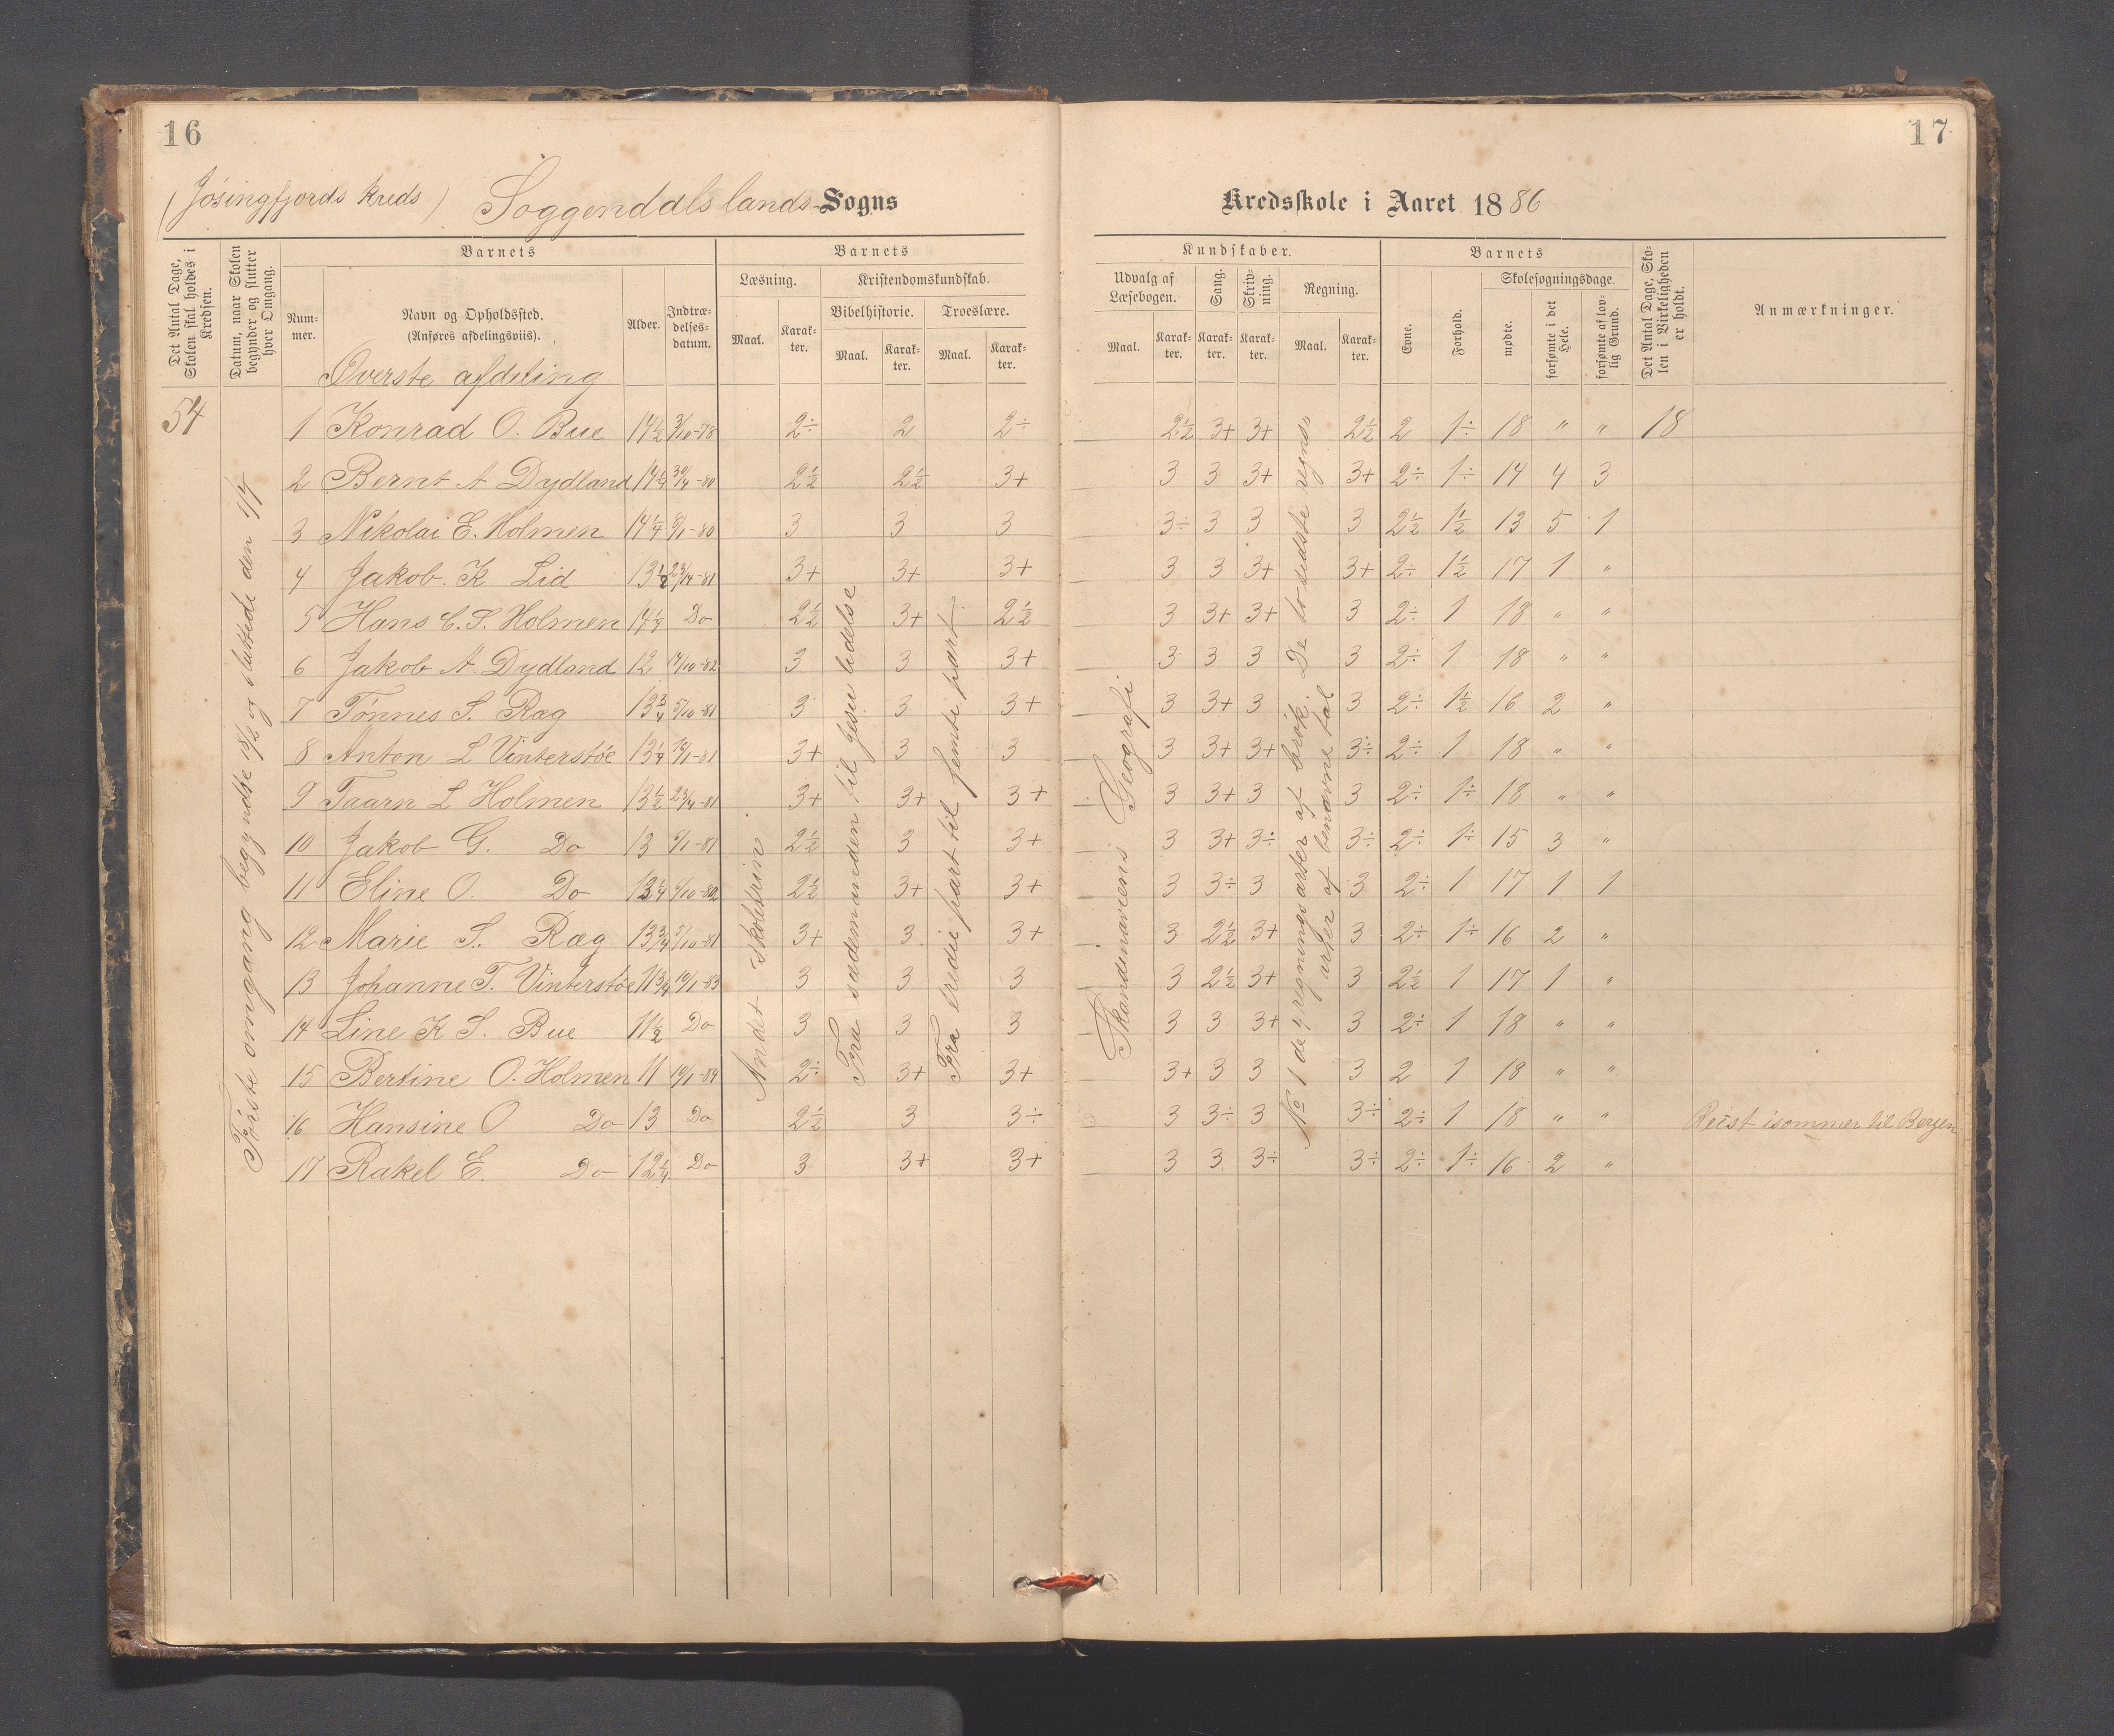 16
17
(Jøsingfjords kreds) Soggendals lands-Sogns
Kredsskole i Aaret 1886
Det Antal Dage, Skolen skal holdes i Kredsen.
Datum, naar Skolen begynder og slutter hver Omgang.
Barnets
Num-mer.
Navn og Opholdssted.
(Anføres afdelingsviis).
Alder.
Indtræ-delses-datum.
Barnets
Læsning.
Maal.
Karak-ter.
Kristendomskundskab.
Bibelhistorie.
Maal.
Karak-ter.
Troeslære.
Maal.
Karak-ter.
Kundskaber.
Udvalg af Læsebogen.
Maal.
Karak-ter.
Sang.
Karak-ter.
Skriv-ning.
Karak-ter.
Regning.
Maal.
Karak-ter.
Barnets
Evne.
Forhold.
Skolesøgningsdage.
mødte.
forsømte i det Hele.
forsømte af lov-lig Grund.
Det Antal Dage, Sko-len i Virkeligheden er holdt.
Anmærkninger.
Øverste afdeling
54
Første omgang begyndte og sluttede den 1/7
Andet skoletrin
Fra sædemanden til Jesu lidelse
Fra tredie part til femte part.
Skandinaviens Geografi
No 1 de 4 regningsarter af brök. De to sidste regns-
arter af benævnte tal
1 Konrad O. Bue 14½ 3/10-78 2÷ 2 2÷ 2½ 3+ 3+ 2½ 2 1÷ 18 " " 18
2 Bernt A Dydland 14¼ 30/4-80 2½ 2½ 3+ 3 3 3+ 3+ 2÷ 1÷ 14 4 3
3 Nikolai E. Holmen 14¼ 8/1-80 3 3 3 3÷ 3 3 3 2½ 1½ 13 5 1
4 Jakob K Lid 13½ 23/4-81 3+ 3+ 3+ 3 3 3+ 3+ 2÷ 1½ 17 1 "
5 Hans C. S. Holmen 14¼ Do 2½ 3+ 2½ 3 3+ 3+ 3 2÷ 1 18 " "
6 Jakob A Dydland 12 17/10-82 3 3 3+ 3 3 3 3 2÷ 1 18 " "
7 Tönnes S. Ræg 13¾ 5/10-81 3 3 3+ 3 3+ 3 3 2÷ 1½ 16 2 "
8 Anton L Vinterstöe 13¼ 19/1-81 3+ 3 3 3 3+ 3+ 3÷ 2÷ 1 18 " "
9 Taarn L Holmen 13½ 23/4-81 3+ 3+ 3+ 3 3+ 3 3 2÷ 1÷ 18 " "
10 Jakob G. Do 13 6/1-81 2½ 3 3+ 3 3+ 3÷ 3÷ 2÷ 1÷ 15 3 "
11 Eline O. Do 13¼ 9/10-82 2½ 3+ 3+ 3 3÷ 3 3 2÷ 1 17 1 1
12 Marie S. Ræg 13¾ 5/10-81 3+ 3 3+ 3 2½ 3+ 3 2÷ 1÷ 16 2 "
13 Johanne T. Vinterstöe 11¾ 19/1-83 3 3 3 3 2½ 3+ 3 2½ 1 17 1 "
14 Line K S. Bue 11½ Do 3 3 3 3 3 3+ 3 2÷ 1 18 " "
15 Bertine O. Holmen 11 19/1-84 2÷ 3+ 3+ 3+ 3 3 3 2 1 18 " "
16 Hansine O Do 13 Do 2½ 3 3÷ 3 3÷ 3 3÷ 2÷ 1 18 " " Reist isommer til Bergen
17 Rakel E. Do 12¼ Do 3 3+ 3+ 3 3 3÷ 3÷ 2÷ 1÷ 16 2 "